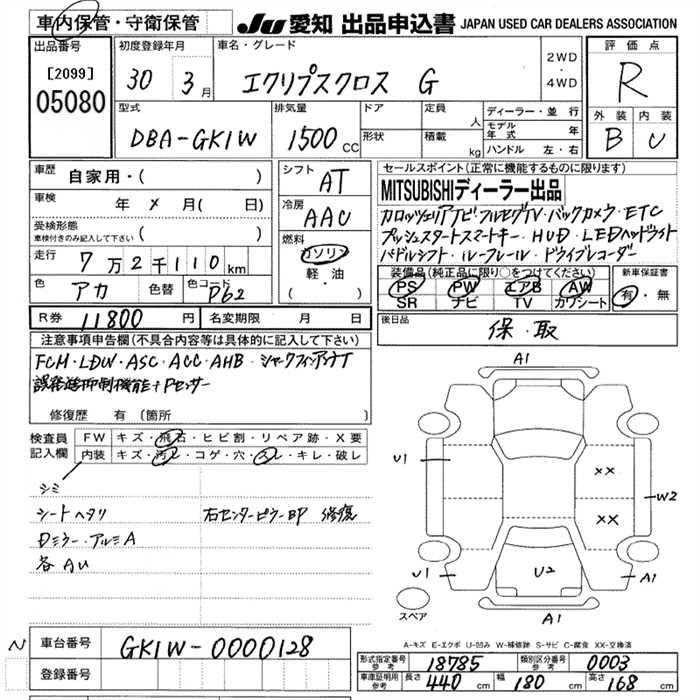 車内保管・守衛保管 JU 愛知 出品申込書 JAPAN USED CAR DEALERS ASSOCIATION
出品番号 [2099] 05080
初度登録年月 30 3月
車名・グレード エクリプスクロス G
2WD・4WD
評価点 R
外装 B 内装 C
型式 DBA-GK1W
排気量 1500cc
ドア 形状
定員 人 積載 kg
ディーラー・並行
モデル年式 年
ハンドル 左・右
車歴 自家用・( )
車検 年 〆 月( 日)
受検形態 車検付きのみ記入して下さい ( )
走行 7万2千110km
色 アカ 色替 色コード P62
シフト AT
冷房 AAC
燃料 ガソリン 軽・油 ( )
セールスポイント(正常に機能するものに限ります)
MITSUBISHIディーラー出品
カロッツェリアナビ・フルセグTV・バックカメラ・ETC
プッシュスタートスマートキー・HUD・LEDヘッドライト
パドルシフト・ルーフレール・ドライブレコーダー
装備品(純正品に限り○をつけてください) 新車保証書
PS PW エアB AW 有・無
SR ナビ TV カワシート
R券 11800円 名変期限 月 日
後日品 保・取
注意事項申告欄(不具合内容等は具体的に記入して下さい)
FCM・LDW・ASC・ACC・AHB・シャークフィンアンテナ
誤発進抑制機能+Pセンサー
修復歴 有(箇所
検査員記入欄 FW キズ・飛石・ヒビ割・リペア跡・X要
内装 キズ・汚レ・コゲ・穴・スレ・キレ・破レ
シミ
シートヘタリ 右センターピラーBP 修復
Dミラー・アルミA
各AU
A1
U1
XX
W2
XX
U1
U2
A1
スペア
A1
A-キズ E-エクボ U-凹み W-補修跡 S-サビ C-腐食 XX-交換済
N 車台番号 GK1W-0000128
登録番号
形式指定番号 参考 18785 類別区分番号 参考 0003
車庫証明用 参考 長さ 440cm 幅 180cm 高さ 168cm